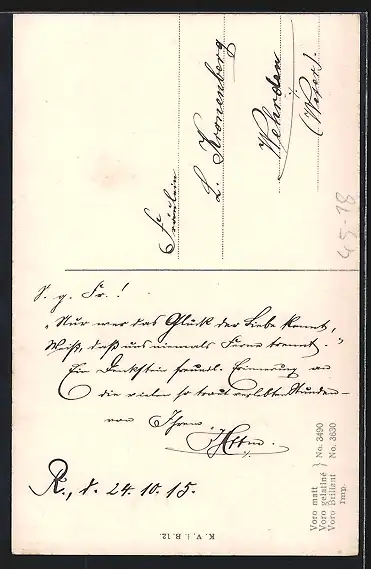 Fräulein
L. Kronenberg
Wehrden
(Weser).
45-18
S. g. Fr.!
„Nur wer das Glück der Liebe kennt,
Weiß, daß uns niemals Ferne trennt."
Ein Denkstein freundl. Erinnerung an
die vielen so traut verlebten Stunden
von Ihrem
R., d. 24.10.15.
Voro matt
Voro gelatiné } No. 3490
Voro Brillant No. 3630
Imp.
K. V. i. B. 12.